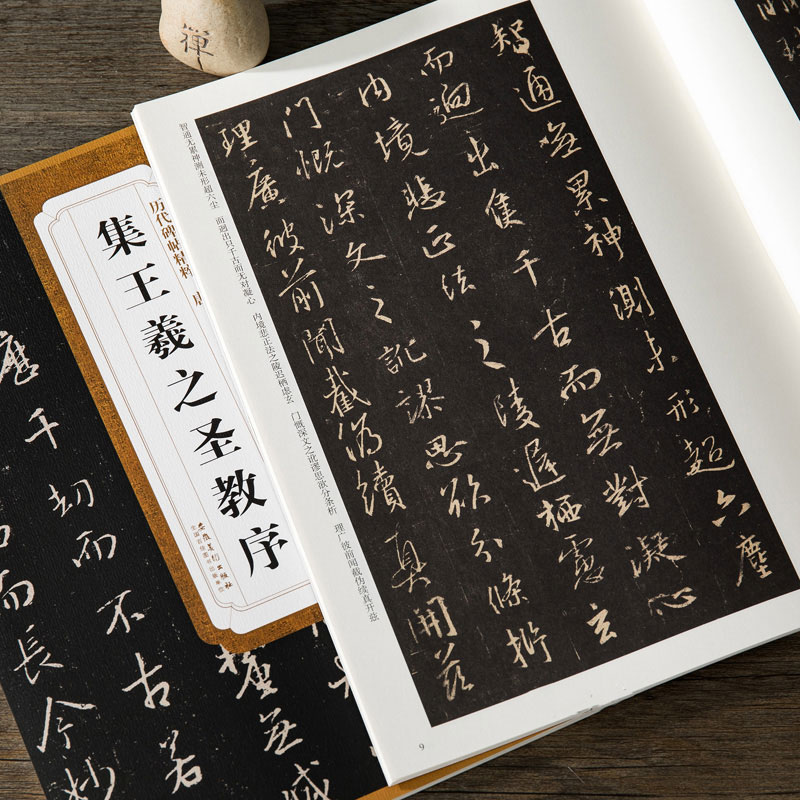 禪
智通無累神測未形超六塵
而迥出隻千古而無對凝心
内境悲正法之陵遲栖慮玄
門慨深文之訛謬思欲分條析
理廣彼前聞截偽續真開茲
智通无累神测未形超六尘 而迥出只千古而无对凝心 内境悲正法之陵迟栖虑玄 门慨深文之讹谬思欲分条析 理广彼前闻截伪续真开兹
9
历代碑帖精粹
集王羲之圣教序
安徽美术出版社
全国百佳图书出版单位
無滅
歷千劫而不古若
而長今妙